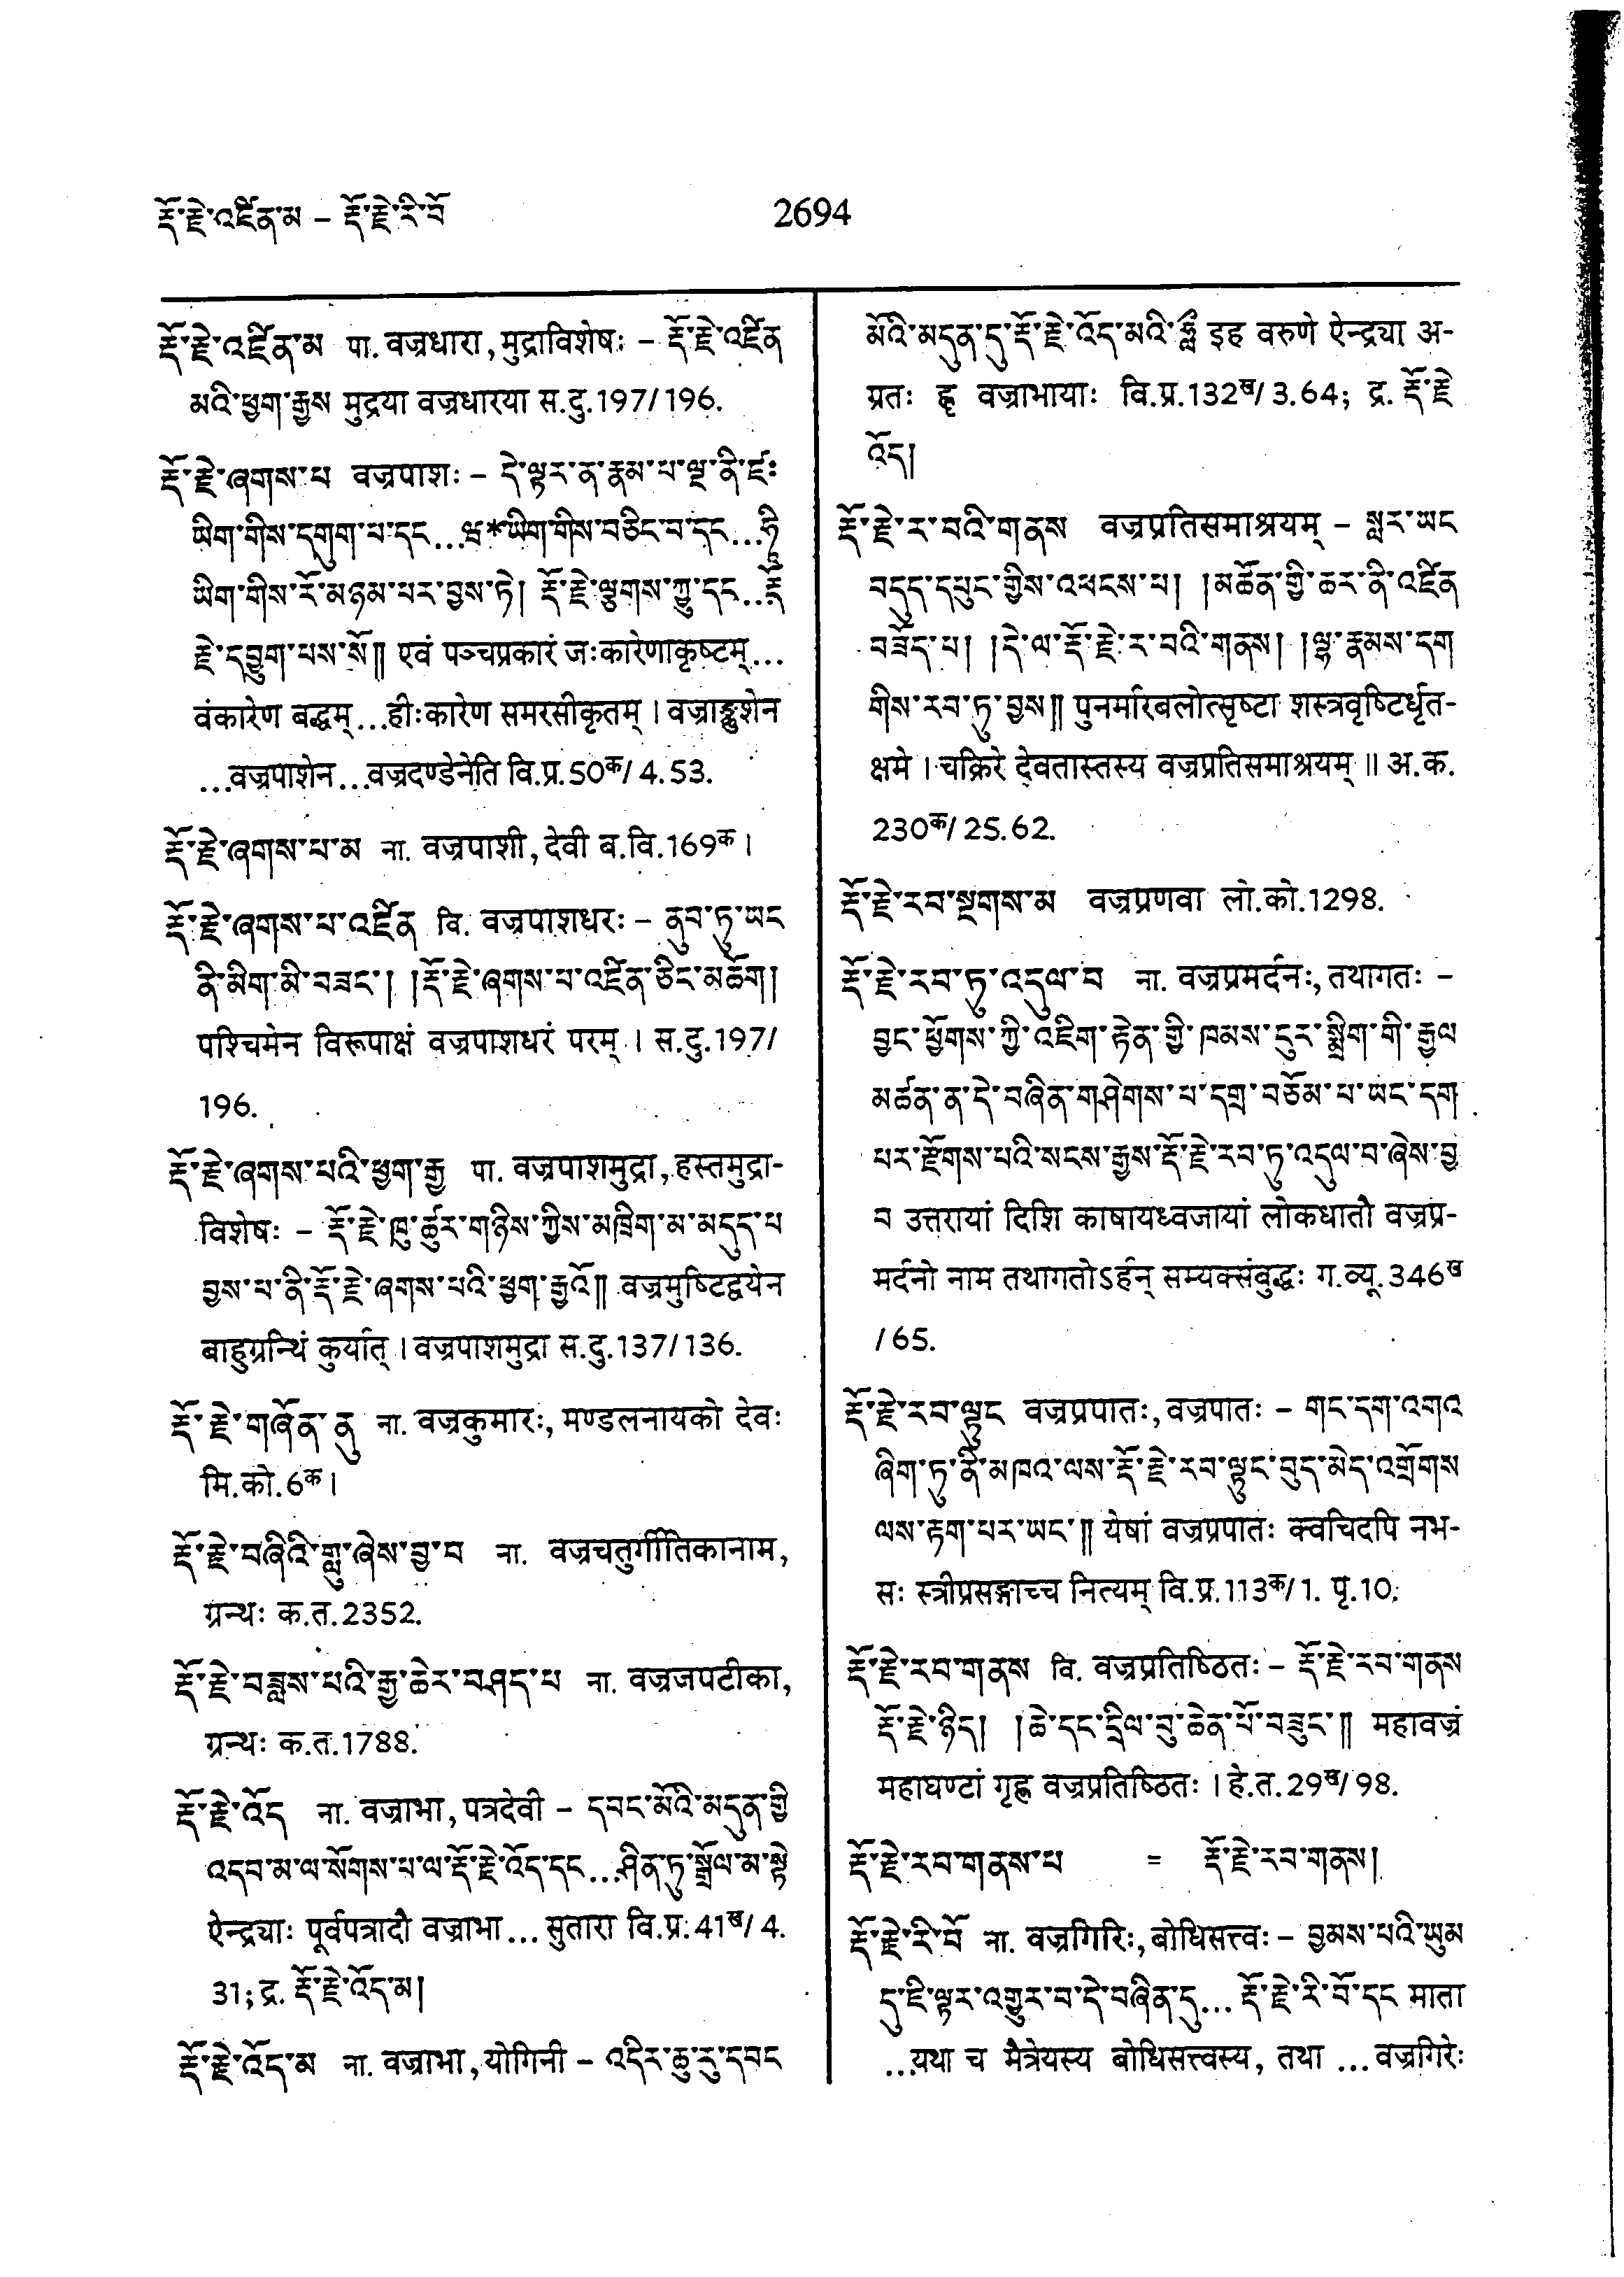 རྡོ་རྗེ་འཛིན་མ – རྡོ་རྗེ་རི་བོ
2694
རྡོ་རྗེ་འཛིན་མ पा. वज्रधारा, मुद्राविशेषः – རྡོ་རྗེ་འཛིན
མའི་ཕྱག་རྒྱས मुद्रया वज्रधारया स.दु.197/196.
རྡོ་རྗེ་ཞགས་པ वज्रपाशः – དེ་ལྟར་ན་རྣམ་པ་ལྔ་ནི་ཛཿ
ཡིག་གིས་དགུག་པ་དང...*ཡིག་གིས་བཅིང་བ་དང...ཧཱི
ཡིག་གིས་རོ་མཉམ་པར་བྱས་ཏེ། རྡོ་རྗེ་ལྕགས་ཀྱུ་དང...རྡོ
རྗེ་དབྱུག་པས་སོ༎ एवं पञ्चप्रकारं जःकारेणाकृष्टम्...
वंकारेण बद्धम्...हीःकारेण समरसीकृतम् । वज्राङ्कुशेन
...वज्रपाशेन...वज्रदण्डेनेति वि.प्र.50क/4.53.
རྡོ་རྗེ་ཞགས་པ་མ ना. वज्रपाशी, देवी ब.वि.169क।
རྡོ་རྗེ་ཞགས་པ་འཛིན वि. वज्रपाशधरः – ནུབ་ཏུ་ཡང
ནི་མིག་མི་བཟང་། །རྡོ་རྗེ་ཞགས་པ་འཛིན་ཅིང་མཆོག།
पश्चिमेन विरूपाक्षं वज्रपाशधरं परम् । स.दु.197/
196.
རྡོ་རྗེ་ཞགས་པའི་ཕྱག་རྒྱ पा. वज्रपाशमुद्रा, हस्तमुद्रा-
विशेषः – རྡོ་རྗེ་ཁུ་ཚུར་གཉིས་ཀྱིས་མཁྲིག་མ་མདུད་པ
བྱས་པ་ནི་རྡོ་རྗེ་ཞགས་པའི་ཕྱག་རྒྱའོ༎ वज्रमुष्टिद्वयेन
बाहुग्रन्थिं कुर्यात् । वज्रपाशमुद्रा स.दु.137/136.
རྡོ་རྗེ་གཞོན་ནུ ना. वज्रकुमारः, मण्डलनायको देवः
मि.को.6क।
རྡོ་རྗེ་བཞིའི་གླུ་ཞེས་བྱ་བ ना. वज्रचतुर्गीतिकानाम,
ग्रन्थः क.त.2352.
རྡོ་རྗེ་བཟླས་པའི་རྒྱ་ཆེར་བཤད་པ ना. वज्रजपटीका,
ग्रन्थः क.त.1788.
རྡོ་རྗེ་འོད ना. वज्राभा, पत्रदेवी – དབང་མོའི་མདུན་གྱི
འདབ་མ་ལ་སོགས་པ་ལ་རྡོ་རྗེ་འོད་དང...ཤིན་ཏུ་སྒྲོལ་མ་སྟེ
ऐन्द्र्याः पूर्वपत्रादौ वज्राभा... सुतारा वि.प्र.41ख/4.
31; द्र. རྡོ་རྗེ་འོད་མ།
རྡོ་རྗེ་འོད་མ ना. वज्राभा, योगिनी – འདིར་ཆུ་རུ་དབང
མོའི་མདུན་དུ་རྡོ་རྗེ་འོད་མའི་ इह वरुणे ऐन्द्र्या अ-
ग्रतः वज्राभायाः वि.प्र.132ख/3.64; द्र. རྡོ་རྗེ
འོད།
རྡོ་རྗེ་ར་བའི་གནས वज्रप्रतिसमाश्रयम् – སླར་ཡང
བདུད་དཔུང་གྱིས་འཕངས་པ། །མཚོན་གྱི་ཆར་ནི་འཛིན
བཟོད་པ། །དེ་ལ་རྡོ་རྗེ་ར་བའི་གནས། །ལྷ་རྣམས་དག
གིས་རབ་ཏུ་བྱས༎ पुनर्मारबलोत्सृष्टा शस्त्रवृष्टिर्धृत-
क्षमे । चक्रिरे देवतास्तस्य वज्रप्रतिसमाश्रयम् ॥ अ.क.
230क/25.62.
རྡོ་རྗེ་རབ་སྔགས་མ वज्रप्रणवा लो.को.1298.
རྡོ་རྗེ་རབ་ཏུ་འདུལ་བ ना. वज्रप्रमर्दनः, तथागतः –
བྱང་ཕྱོགས་ཀྱི་འཇིག་རྟེན་གྱི་ཁམས་དུར་སྨྲིག་གི་རྒྱལ
མཚན་ན་དེ་བཞིན་གཤེགས་པ་དགྲ་བཅོམ་པ་ཡང་དག
པར་རྫོགས་པའི་སངས་རྒྱས་རྡོ་རྗེ་རབ་ཏུ་འདུལ་བ་ཞེས་བྱ
བ उत्तरायां दिशि काषायध्वजायां लोकधातौ वज्रप्र-
मर्दनो नाम तथागतोऽर्हन् सम्यक्संबुद्धः ग.व्यू.346ख
/65.
རྡོ་རྗེ་རབ་ལྟུང वज्रप्रपातः, वज्रपातः – གང་དག་འགའ
ཞིག་ཏུ་ནི་མཁའ་ལས་རྡོ་རྗེ་རབ་ལྟུང་བུད་མེད་འགྲོགས
ལས་རྟག་པར་ཡང་༎ येषां वज्रप्रपातः क्वचिदपि नभ-
सः स्त्रीप्रसङ्गाच्च नित्यम् वि.प्र.113क/1. पृ.10.
རྡོ་རྗེ་རབ་གནས वि. वज्रप्रतिष्ठितः – རྡོ་རྗེ་རབ་གནས
རྡོ་རྗེ་ཉིད། །ཆེ་དང་དྲིལ་བུ་ཆེན་པོ་བཟུང་༎ महावज्रं
महाघण्टां गृह्ण वज्रप्रतिष्ठितः । हे.त.29ख/98.
རྡོ་རྗེ་རབ་གནས་པ = རྡོ་རྗེ་རབ་གནས།
རྡོ་རྗེ་རི་བོ ना. वज्रगिरिः, बोधिसत्त्वः – བྱམས་པའི་ཡུམ
དུ་ཇི་ལྟར་འགྱུར་བ་དེ་བཞིན་དུ... རྡོ་རྗེ་རི་བོ་དང माता
...यथा च मैत्रेयस्य बोधिसत्त्वस्य, तथा ... वज्रगिरेः